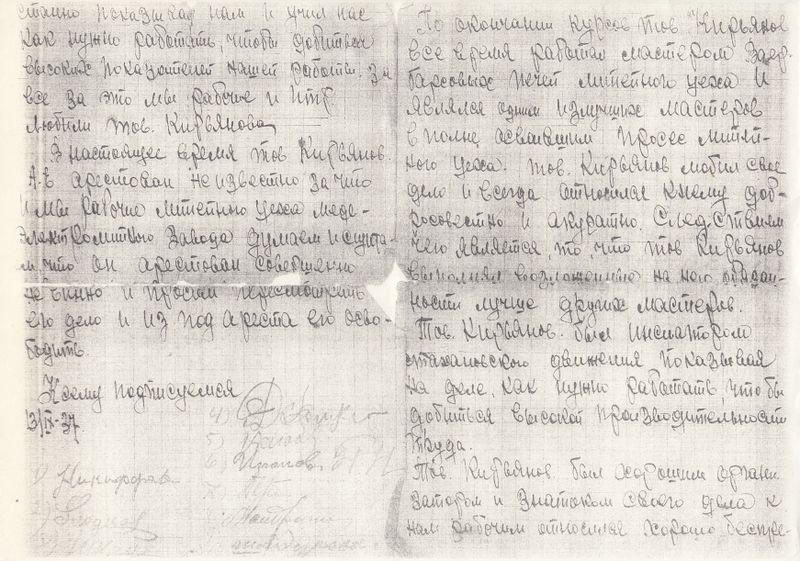 По окончании курсов тов. Кирьянов
все время работал мастером
печей литейного цеха и
являлся одним излучших мастеров
в полне освоившим
ного цеха. тов. Кирьянов любил свое
дело и всегда относился кнему доб-
росовестно и акуратно. Следствием
чего является, то, что тов Кирьянов
выполнял возложенную на него обязан-
ности лучше других мастеров.
Тов. Кирьянов. был
стахановского движения показывая
на деле, как нужно работать, чтобы
добиться высокой производительности
труда.
Тов. Кирьянов. был хорошим органи
затором и знатоком своего дела к
нам рабочим относился хорошо беспре-
станно показывал нам и учил нас
как нужно работать, чтобы добиться
высоких показателей нашей работы. За
все за это мы рабочие и ИТР
любили тов. Кирьянова
В настоящее время тов Кирьянов.
А.В арестован неизвестно за что
и мы рабочие литейного цеха меде-
завода думаем и счита-
м, что он арестован совершенно
и просим пересмотреть
его дело и из под ареста его осво-
бодить.
Ксему подписуемся
13/IX-37
1) Никифоров
4)
5)
6)